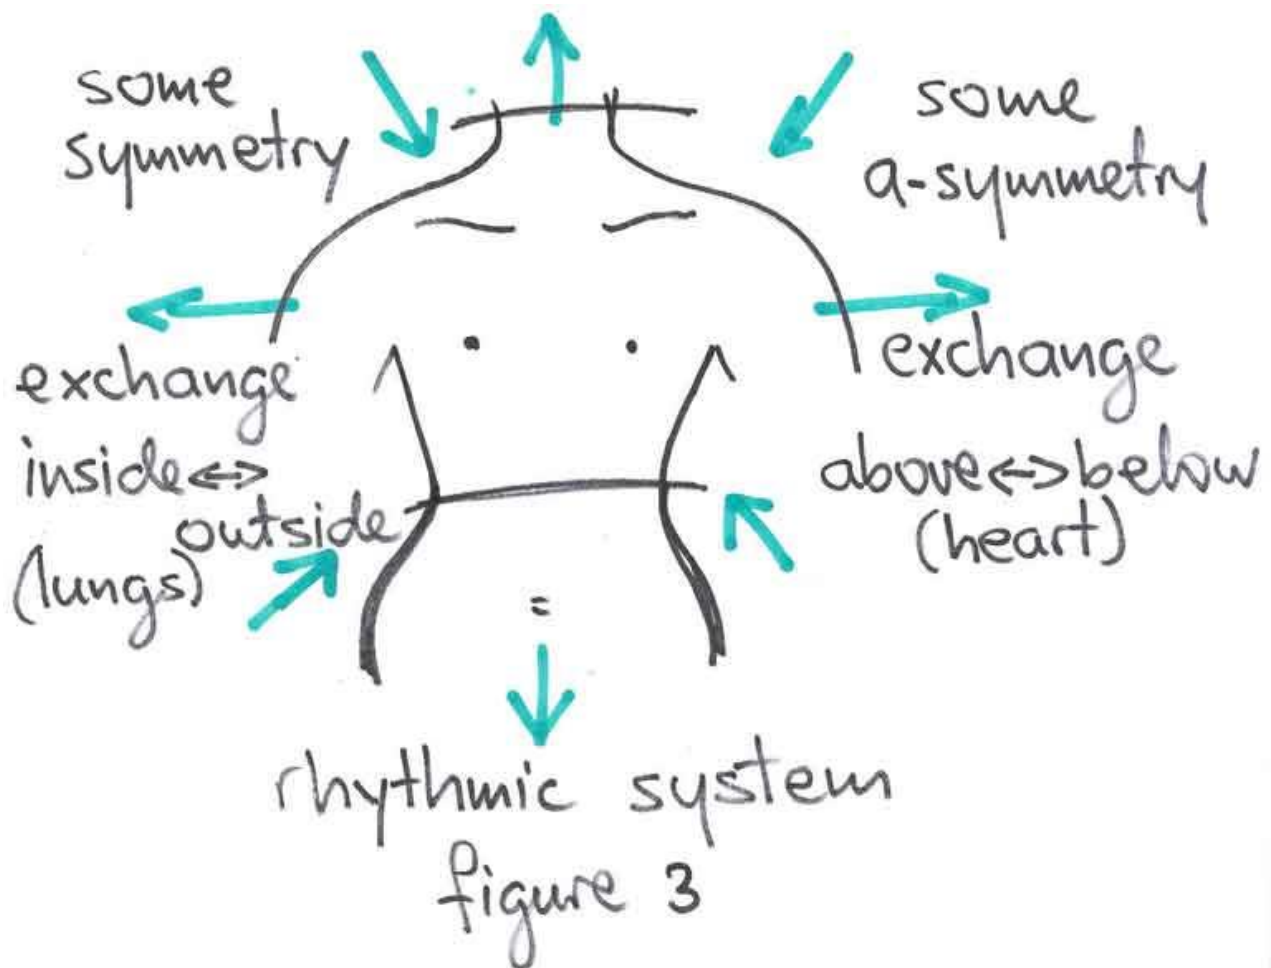 some
symmetry
some
a-symmetry
exchange
inside<->
outside
(lungs)
exchange
above<->below
(heart)
=
rhythmic system
figure 3